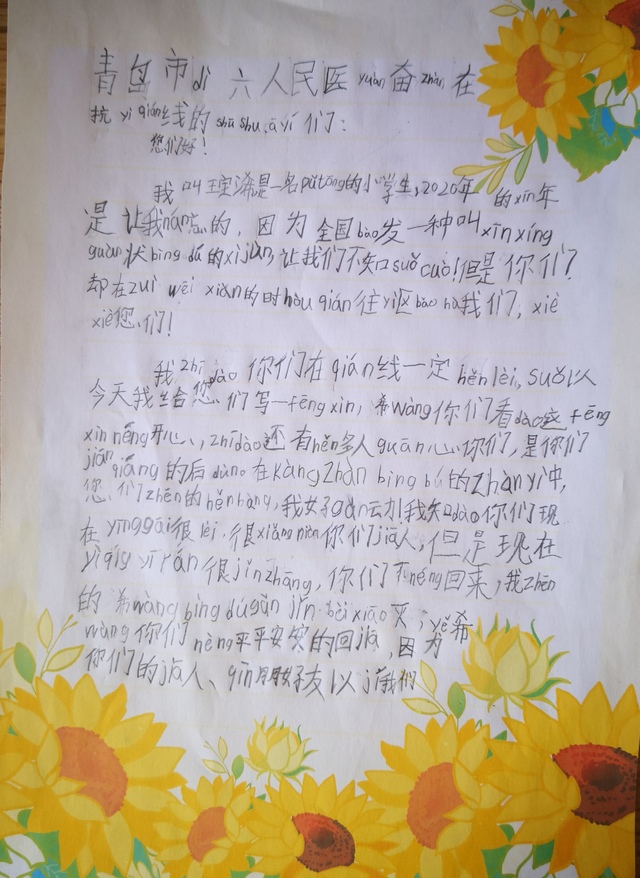 青岛市dì六人民医yuàn奋zhàn在
抗yi qián线的shū shu、ā yí们:
您们好!
我叫王奕浠是一名pǔ tōng的小学生,2020年的xīn年
是让我nán忘的,因为全国bào发一种叫xīn xíng
guān状bìng dú的xì jūn,让我们不知suǒ cuò!但是你们?
却在zuì wēi xiǎn的时hòu qián往yì区bǎo hù我们,xiè
xiè您们!
我zhī dào你们在qián线一定hěn lèi,suǒ以
今天我给您们写一fēng xìn,希wàng你们看dào这fēng
xìn néng开心,zhī dào还有hěn多人guān心你们,是你们
jiān qiáng的后dùn。在kàng zhàn bìng dú的zhàn yì中,
您们zhēn的hěn bàng,我好gǎn动!我知dào你们现
在yīng gāi很lèi,很xiǎng niàn你们jiā人,但是现在
yì qíng yī rán很jǐn zhāng,你们不néng回来,我zhēn
的希wàng bìng dú gǎn jǐn bèi xiāo灭,yě希
wàng你们néng平平安安的回jiā,因为
你们的jiā人、qīn朋好友以jí我们